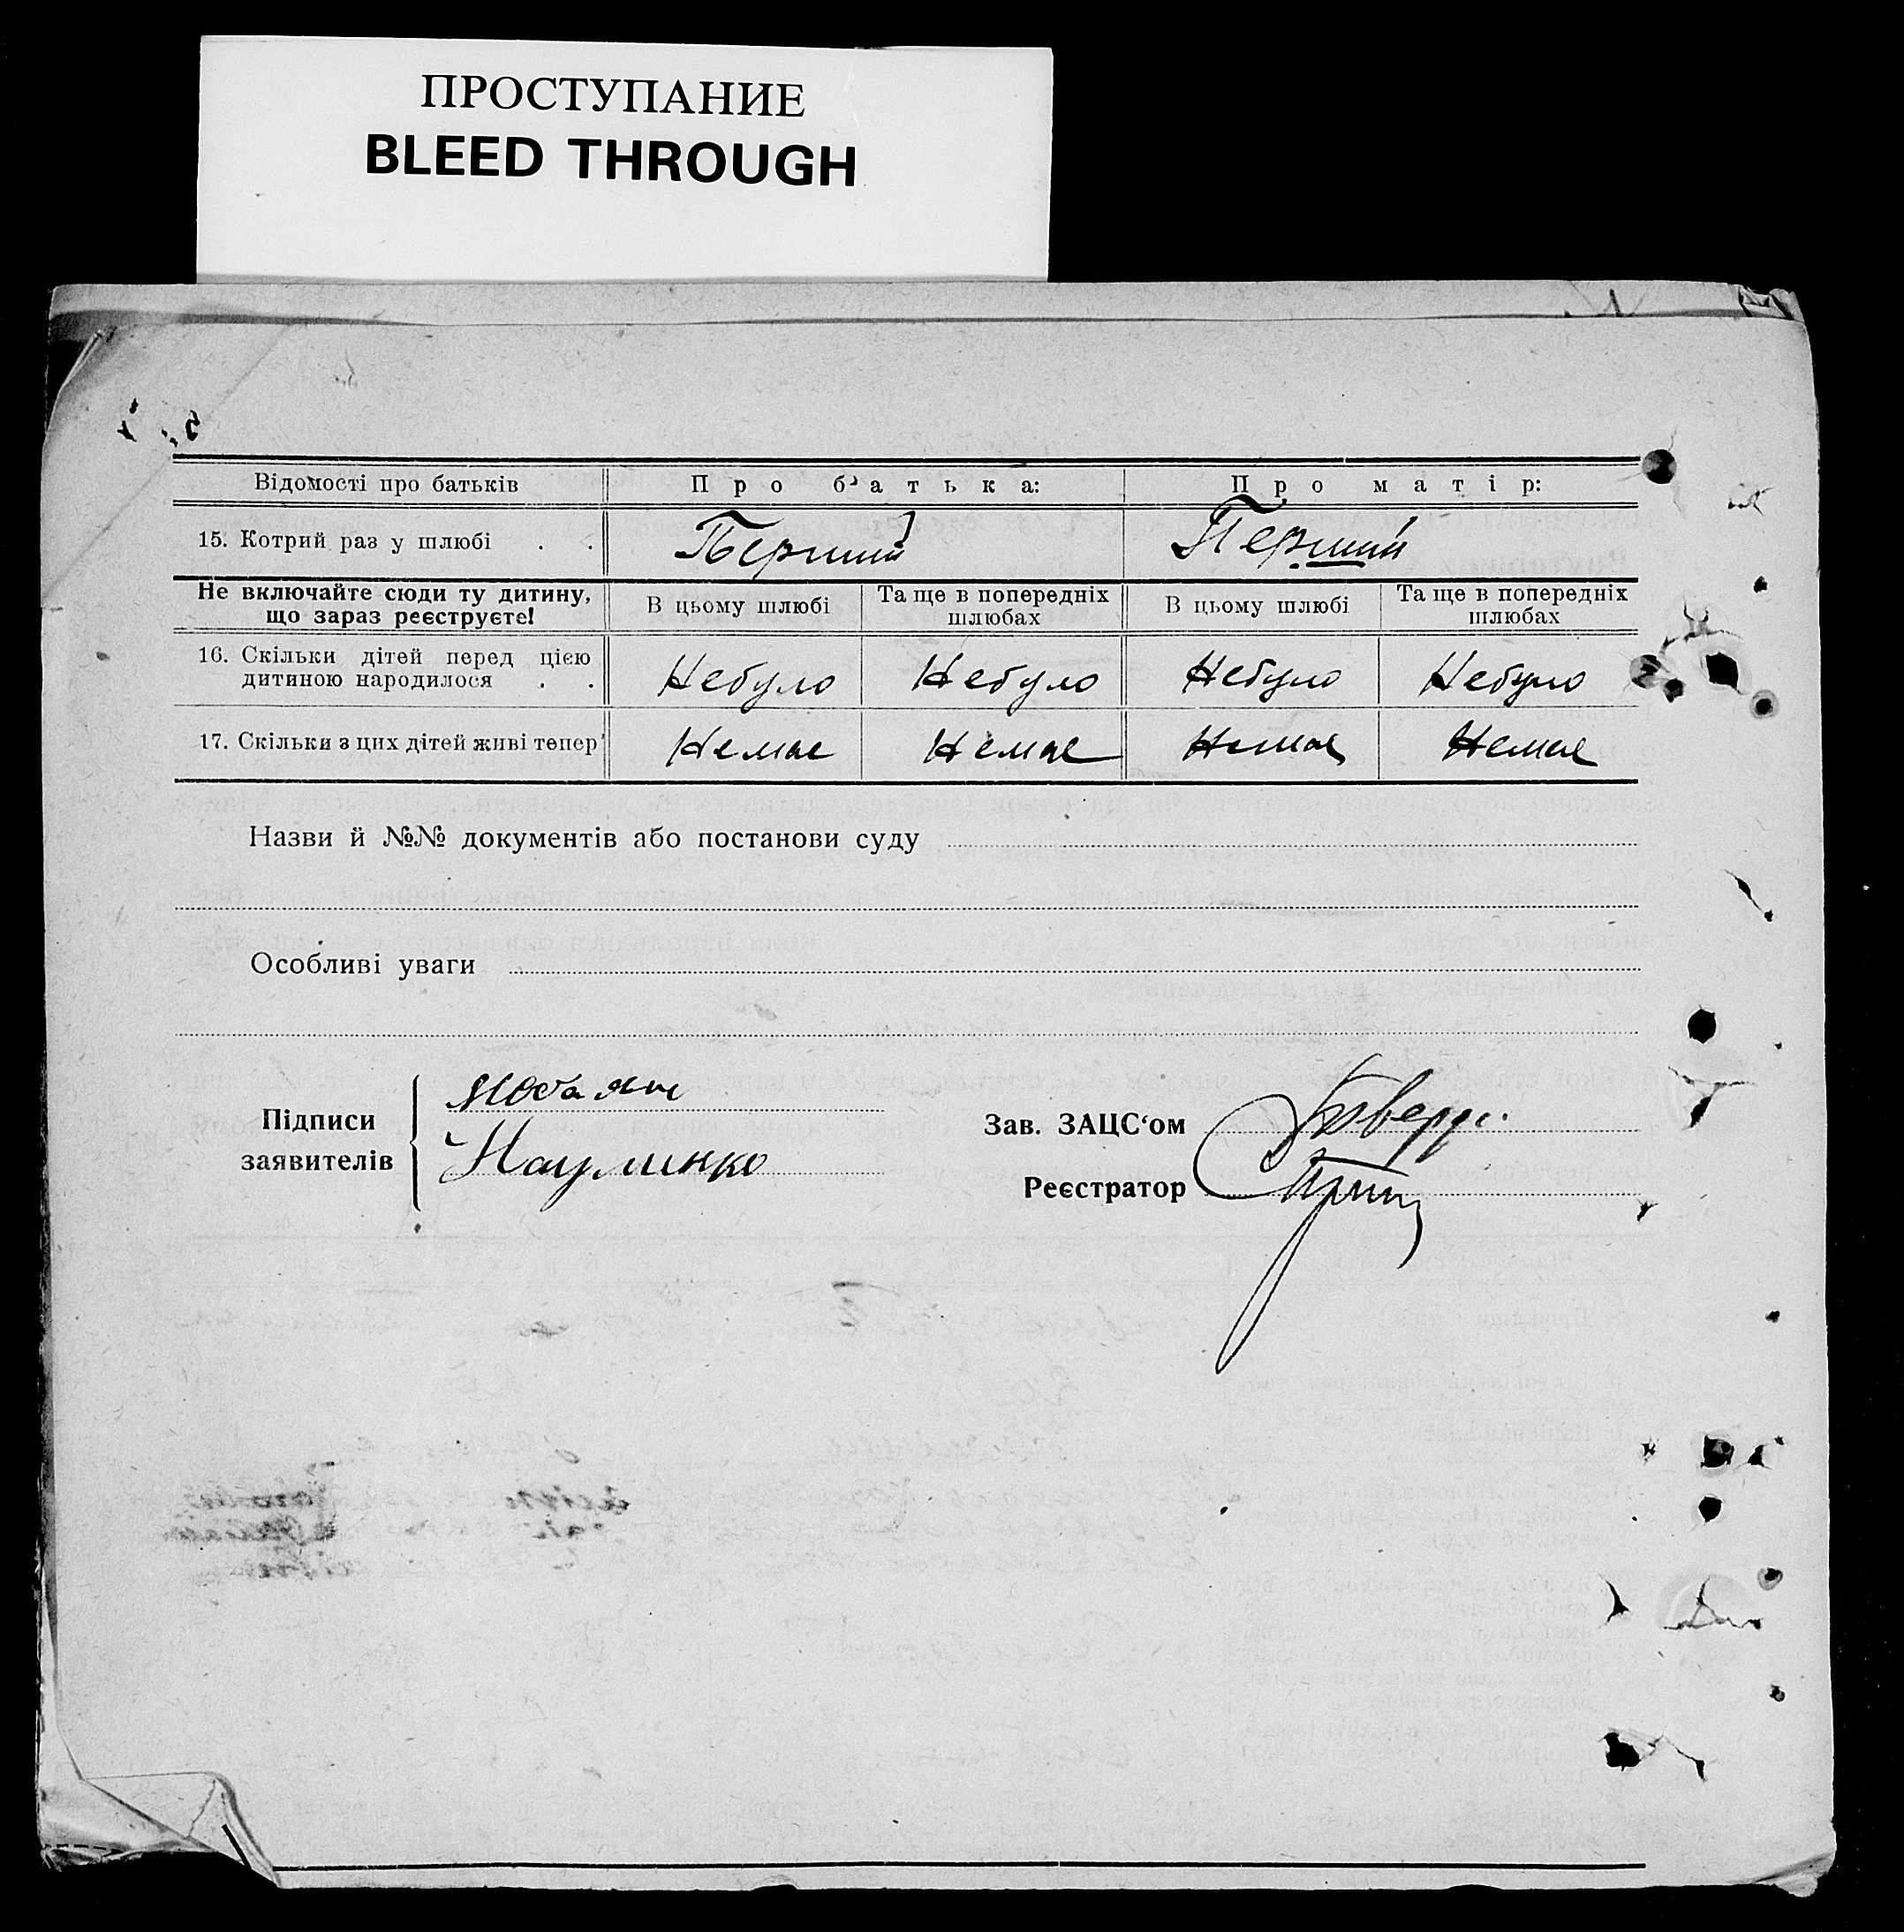 ПРОСТУПАНИЕ
BLEED THROUGH
Відомості про батьків Про батька: Про матір:
15. Котрий раз у шлюбі . . Перший Перший
Не включайте сюди ту дитину, що зараз реєструєте! В цьому шлюбі Та ще в попередніх шлюбах В цьому шлюбі Та ще в попередніх шлюбах
16. Скільки дітей перед цією
дитиною народилося . . Небуло Небуло Небуло Небуло
17. Скільки з цих дітей живі тепер Немає Немає Немає Немає
Назви й №№ документів або постанови суду
Особливі уваги
Підписи
заявителів
Науменко
Зав. ЗАЦС‘ом
Реєстратор